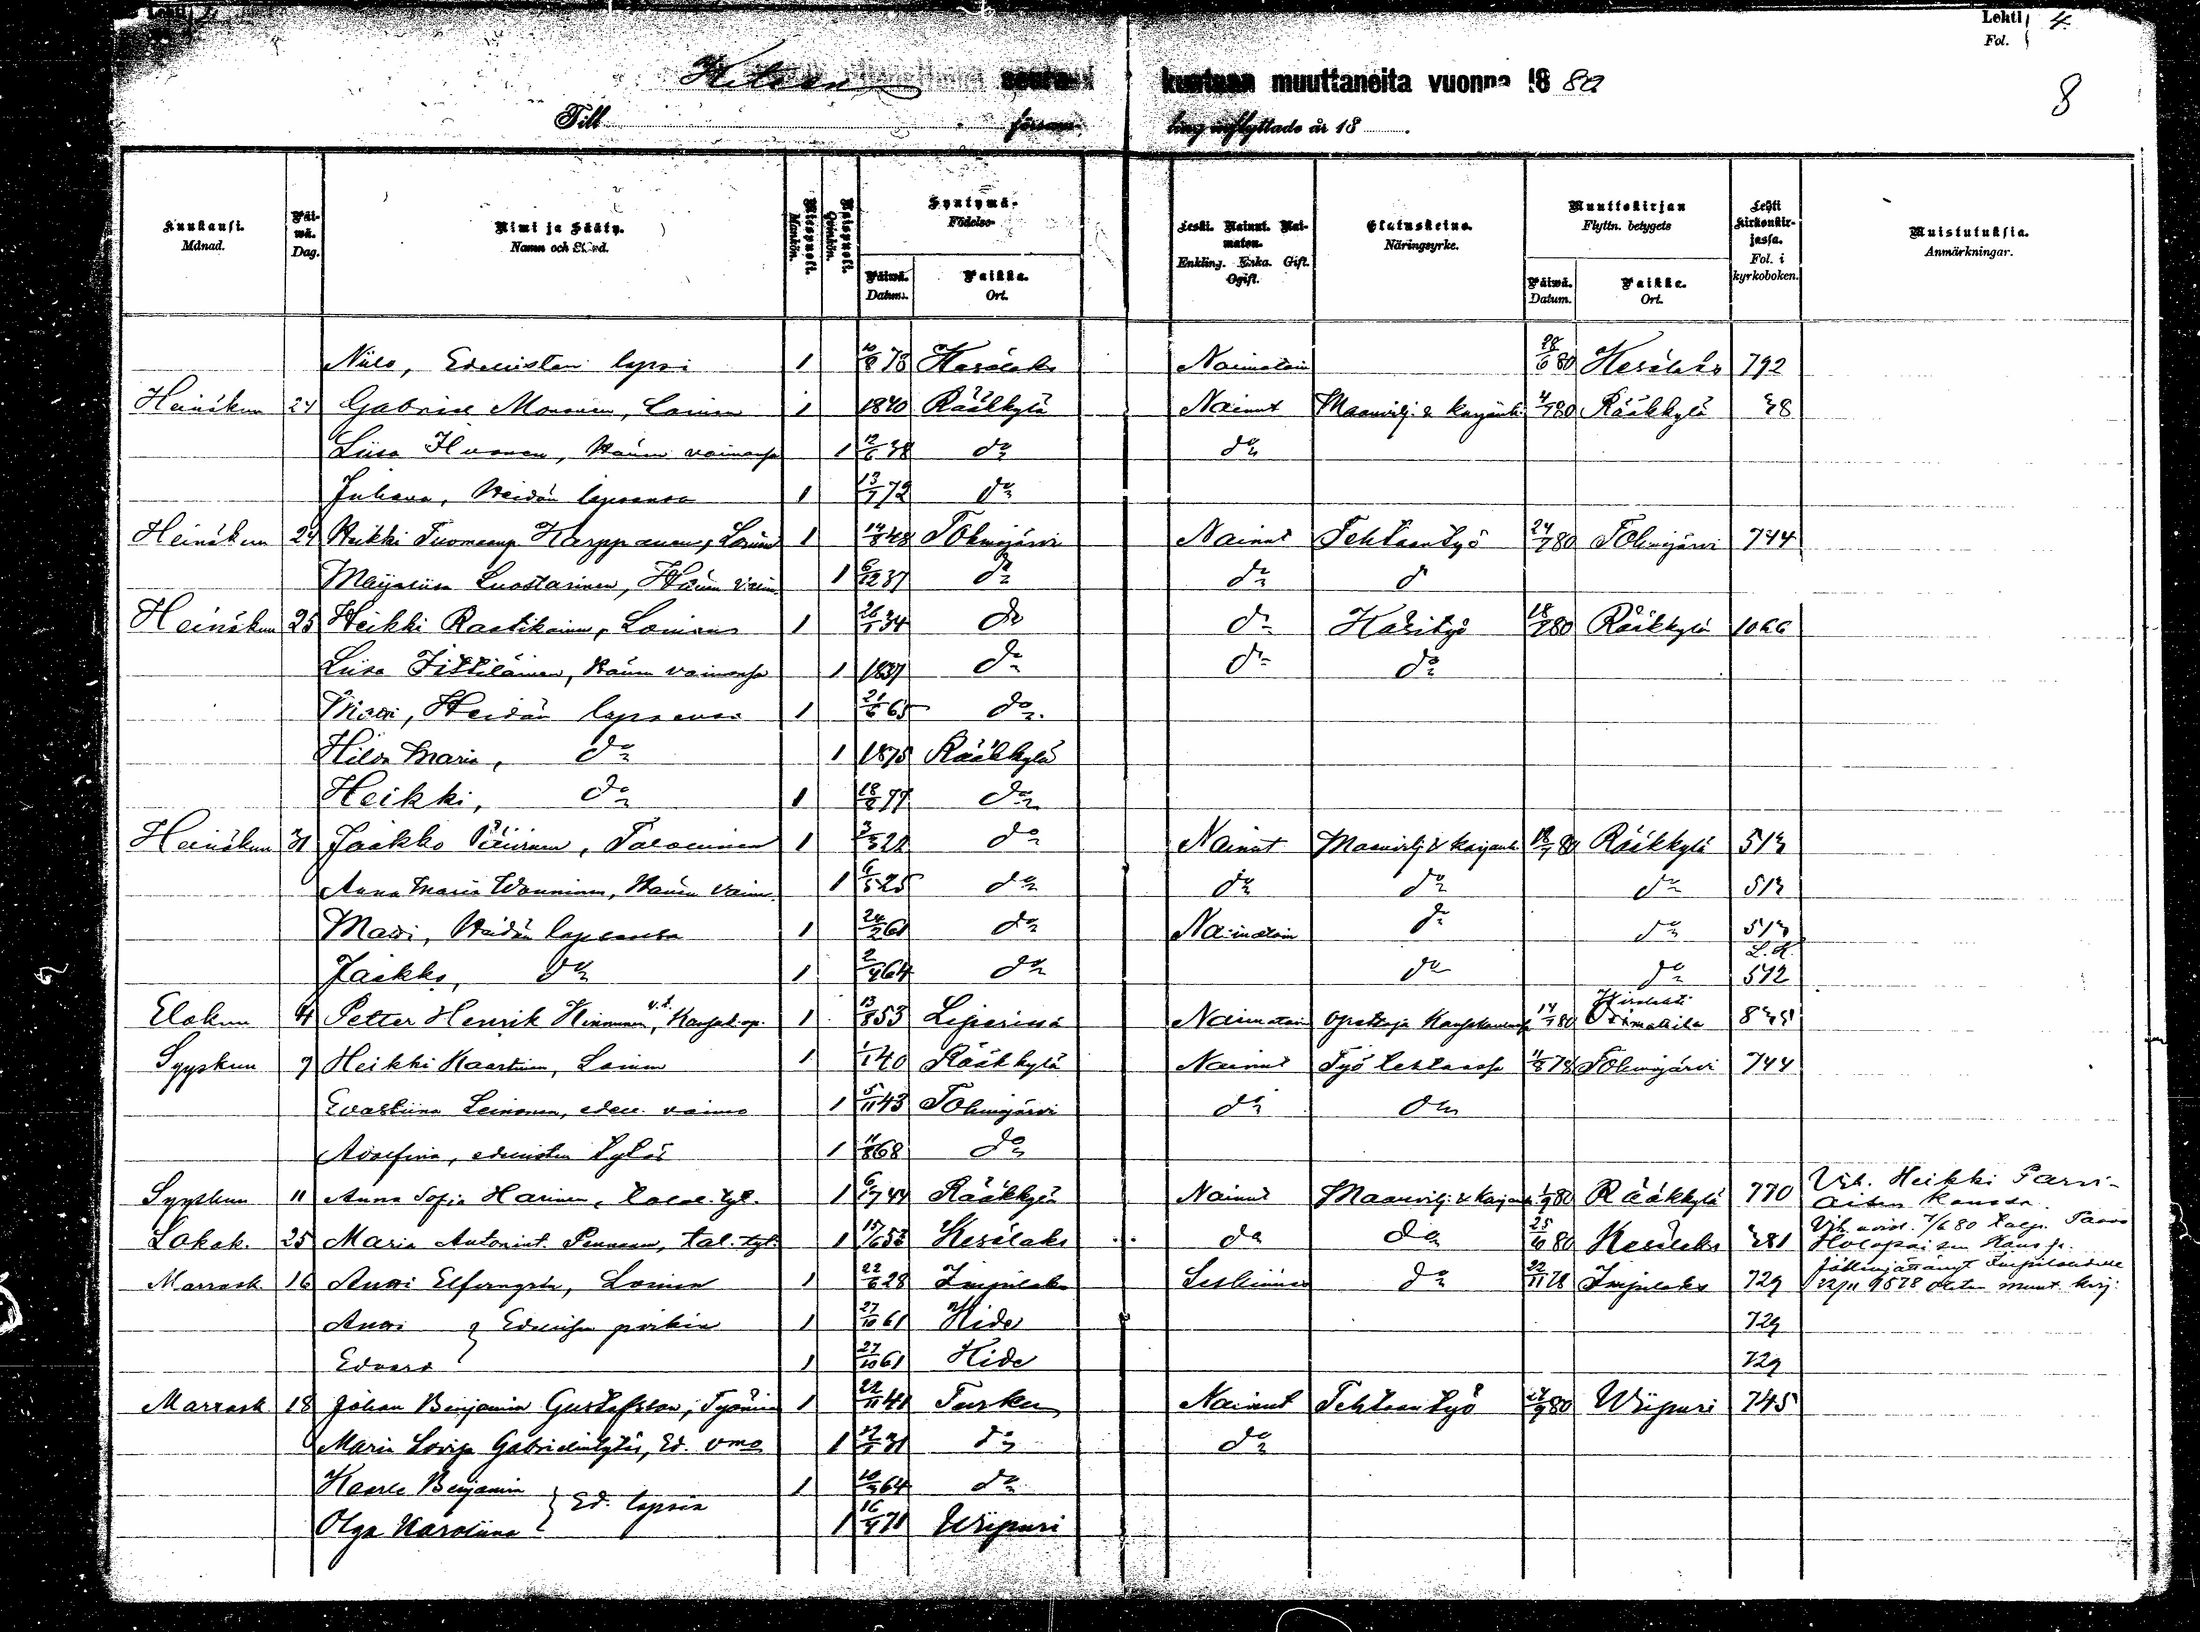 Lehti 4.
Fol.
8
Kiteen seurakuntaan muuttaneita vuonna 1880
Till församling inflyttade år 18
Kuukausi. Päiwä. Nimi ja Sääty. Miespuoli. Naispuoli. Syntymä- Leski. Nainut. Naimaton. Elatuskeino. Muuttokirjan Lehti kirkonkirjassa. Muistutuksia.
Månad. Dag. Namn och Stånd. Mankön. Qvinkön. Födelse- Enkling. Enka. Gift. Ogift. Näringsyrke. Flyttn. betygets Fol. i kyrkoboken. Anmärkningar.
Päiwä. Paikka. Päiwä. Paikka.
Datum. Ort. Datum. Ort.
Niilo, Edellisten lapsi 1 10/8 78 Kesälaks Naimatoin 28/6 80 Kesälaks 792
Heinäkun 24 Gabriel Mononen, Loinen 1 1840 Rääkkylä Nainut Maanvilj. & karjanh. 4/7 80 Rääkkylä
Liisa Hvonen, Hänen vaimonsa 1 12/6 38 do do
Juhana, Heidän lapsensa 1 13/7 72 do
Heinäkun 24 Heikki Tuomaanp. Karppanen, Loinen 1 14/8 48 Tohmajärvi Nainut Tehtaan työ 24/7 80 Tohmajärvi 744
Maijaliisa Luostarinen, Hänen vaim. 1 6/12 37 do do do
Heinäkun 25 Heikki Rastikainen, Loinen 1 26/1 34 do do Käsityö 18/7 80 Rääkkylä 1066
Liisa Tittiläinen, Hänen vaimonsa 1 1837 do do do
Matti, Heidän lapsensa 1 21/6 65 do
Hilda Maria, do 1 1875 Rääkkylä
Heikki, do 1 18/8 77 do
Heinäkun 31 Jaakko Päivinen, Talollinen 1 3/3 22 do Nainut Maanvilj. & karjanh. 18/7 80 Rääkkylä 513
Anna Maria Wänninen, Hänen vaim. 1 6/5 25 do do do do 513
Matti, Heidän lapsensa 1 24/2 61 do Naimatoin do do 513
Jaakko, do 1 2/4 64 do do do L.K. 572
Elokun 4 Petter Henrik Hinnunen, v.t. Kansak. op. 1 13/8 53 Liperissä Naimatoin opettaja Kansakoulussa 14/7 80 Orimattila
Syyskun 9 Heikki Kaartinen, Loinen 1 1/1 40 Rääkkylä Nainut Työ tehtaassa 11/8 78 Tohmajärvi 744
Evastiina Leinonen, edell. vaimo 1 5/11 43 Tohmajärvi do do
Adolfina, edellisten tytär 1 11/8 68 do
Syyskun 11 Anna Sofia Harinen, talol. tyt. 1 6/12 44 Rääkkylä Nainut Maanvilj. & karjanh. 1/9 80 Rääkkylä 770 Vih. Heikki Parviaisen kanssa.
Lokak. 25 Maria Antoinet. Pennanen, tal. tyt. 1 15/6 53 Kesälaks do do 25/10 80 Kesälaks 281 Vih. aviol. 7/6 80 talp. Paavo Holopaisen kanssa.
Marrask. 16 Antti Elfvengren, Loinen 1 22/6 28 Impilaks Leskimies do 22/11 78 Impilaks 729 22/11 1878 muut. kirj.
Antti } Edellisen poikia 1 27/10 61 Kide 729
Edvard 1 27/10 61 Kide 729
Marrask. 18 Johan Benjamin Gustafsson, Työmies 1 22/11 41 Turku Nainut Tehtaan työ 24/9 80 Wiipuri 745
Maria Lovisa Gabrielintytär, Ed. vmo 1 12/5 31 do do
Kaarle Benjamin } Ed. lapsia 1 10/3 64 do
Olga Karoliina 1 16/4 71 Wiipuri